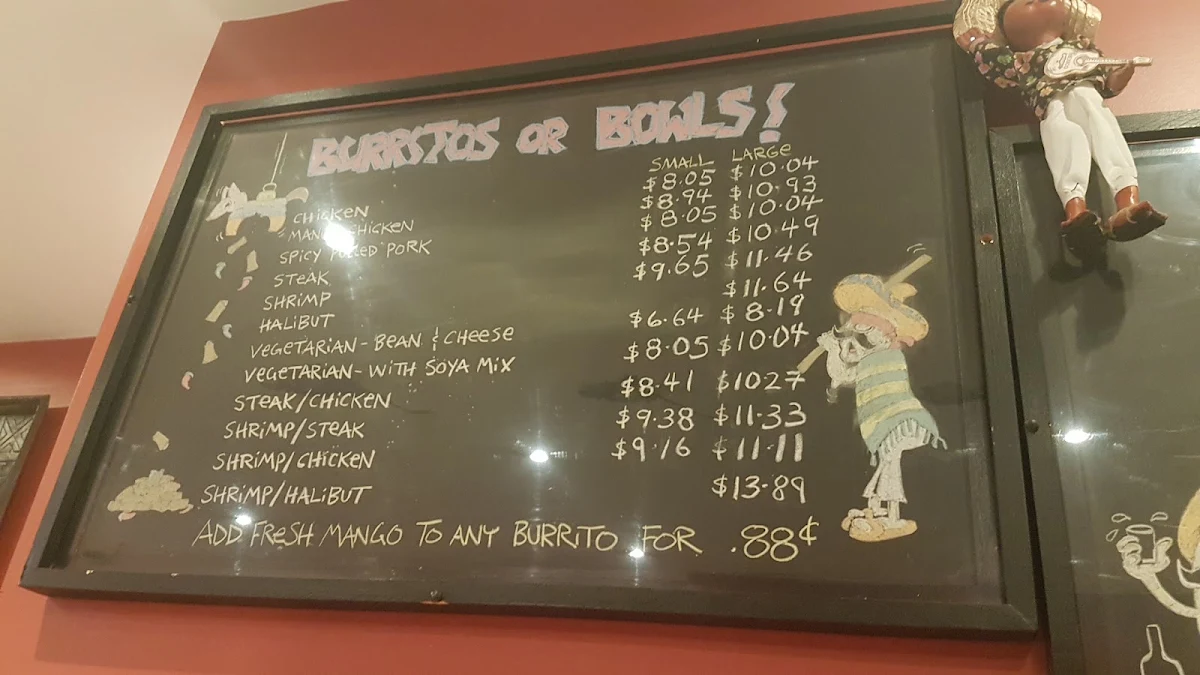 BURRITOS OR BOWLS!
SMALL LARGE
CHICKEN $8.05 $10.04
MANGO CHICKEN $8.94 $10.93
SPICY PULLED PORK $8.05 $10.04
STEAK $8.54 $10.49
SHRIMP $9.65 $11.46
HALIBUT $11.64
VEGETARIAN - BEAN & CHEESE $6.64 $8.19
VEGETARIAN - WITH SOYA MIX $8.05 $10.04
STEAK/CHICKEN $8.41 $1027
SHRIMP/STEAK $9.38 $11.33
SHRIMP/CHICKEN $9.16 $11.11
SHRIMP/HALIBUT $13.89
ADD FRESH MANGO TO ANY BURRITO FOR .88¢